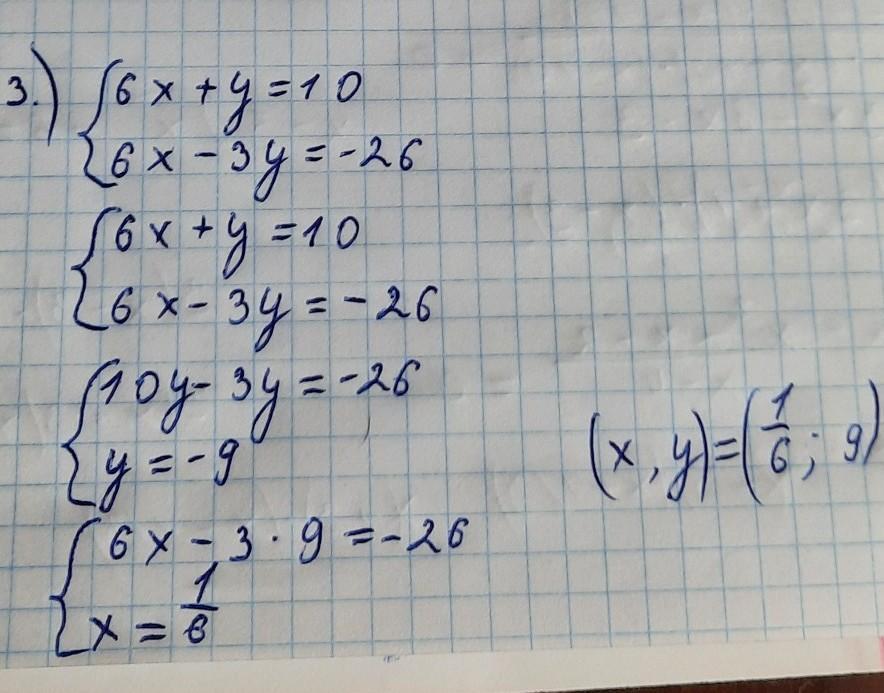 3.) { 6x + y = 10
6x - 3y = -26
{ 6x + y = 10
6x - 3y = -26
{ 10y - 3y = -26
y = -9
(x, y) = (1/6; 9)
{ 6x - 3 · 9 = -26
x = 1/6